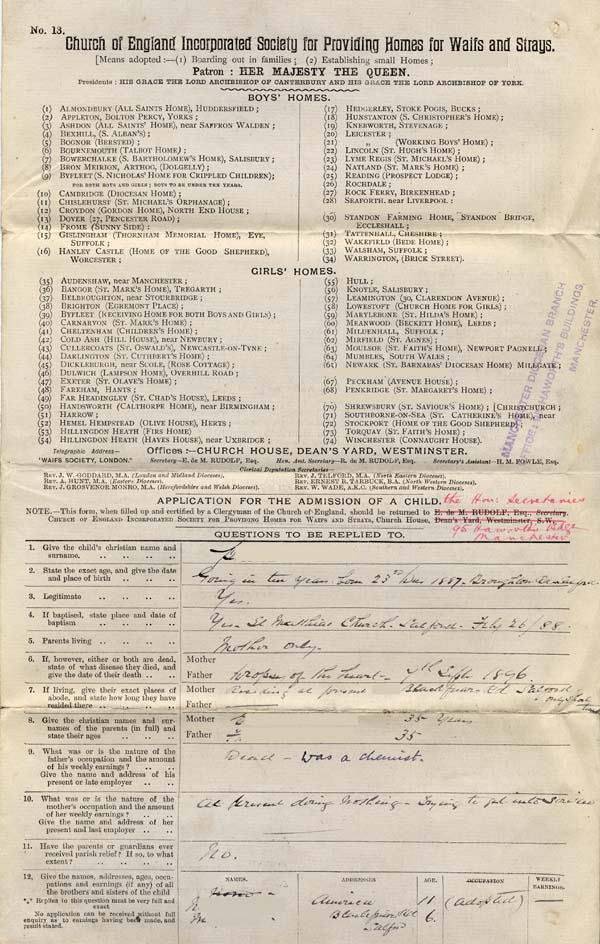 No. 13.
Church of England Incorporated Society for Providing Homes for Waifs and Strays.
[Means adopted:—(1) Boarding out in families; (2) Establishing small Homes;
Patron : HER MAJESTY THE QUEEN.
Presidents: HIS GRACE THE LORD ARCHBISHOP OF CANTERBURY AND HIS GRACE THE LORD ARCHBISHOP OF YORK.
BOYS' HOMES.
(1) ALMONDBURY (ALL SAINTS HOME), HUDDERSFIELD;
(2) APPLETON, BOLTON PERCY, YORKS;
(3) ASHDON (ALL SAINTS' HOME), near SAFFRON WALDEN;
(4) BEXHILL, (S. ALBAN'S);
(5) BOGNOR (BERSTED);
(6) BOURNEMOUTH (TALBOT HOME);
(7) BOWERCHALKE (S. BARTHOLOMEW'S HOME), SALISBURY;
(8) BRON MEIRION, ARTHOG, (DOLGELLY);
(9) BYFLEET (S. NICHOLAS' HOME FOR CRIPPLED CHILDREN);
FOR BOTH BOYS AND GIRLS; BOYS TO BE UNDER TEN YEARS.
(10) CAMBRIDGE (DIOCESAN HOME);
(11) CHISLEHURST (ST. MICHAEL'S ORPHANAGE);
(12) CROYDON (GORDON HOME), NORTH END HOUSE;
(13) DOVER (27, PENCESTER ROAD);
(14) FROME (SUNNY SIDE):
(15) GISLINGHAM (THORNHAM MEMORIAL HOME), EYE, SUFFOLK;
(16) HANLEY CASTLE (HOME OF THE GOOD SHEPHERD), WORCESTER;
(17) HEDGERLEY, STOKE POGIS, BUCKS;
(18) HUNSTANTON (S. CHRISTOPHER'S HOME)
(19) KNEBWORTH, STEVENAGE;
(20) LEICESTER;
(21) „ (WORKING BOYS' HOME);
(22) LINCOLN (ST. HUGH'S HOME);
(23) LYME REGIS (ST. MICHAEL'S HOME);
(24) NATLAND (ST. MARK'S HOME);
(25) READING (PROSPECT LODGE);
(26) ROCHDALE;
(27) ROCK FERRY, BIRKENHEAD;
(28) SEAFORTH. near LIVERPOOL:
(30) STANDON FARMING HOME, STANDON BRIDGE, ECCLESHALL;
(31) TATTENHALL, CHESHIRE;
(32) WAKEFIELD (BEDE HOME);
(33) WALSHAM, SUFFOLK;
(34) WARRINGTON, (BRICK STREET).
GIRLS' HOMES.
(35) AUDENSHAW, near MANCHESTER;
(36) BANGOR (ST. MARK'S HOME), TREGARTH;
(37) BELBROUGHTON, near STOURBRIDGE;
(38) BRIGHTON (EGREMONT PLACE);
(39) BYFLEET (RECEIVING HOME FOR BOTH BOYS AND GIRLS);
(40) CARNARVON (ST. MARK'S HOME);
(41) CHELTENHAM (CHILDREN'S HOME);
(42) COLD ASH (HILL HOUSE), near NEWBURY;
(43) CULLERCOATS (ST. OSWALD'S), NEWCASTLE-ON-TYNE;
(44) DARLINGTON (ST. CUTHBERT'S HOME);
(45) DICKLEBURGH, near SCOLE, (ROSE COTTAGE);
(46) DULWICH (LAMPSON HOME), OVERHILL ROAD;
(47) EXETER (ST. OLAVE'S HOME);
(48) FAREHAM, HANTS;
(49) FAR HEADINGLEY (ST. CHAD'S HOUSE), LEEDS;
(50) HANDSWORTH (CALTHORPE HOME), near BIRMINGHAM;
(51) HARROW;
(52) HEMEL HEMPSTEAD (OLIVE HOUSE), HERTS;
(53) HILLINGDON HEATH (FIRS HOME)
(54) HILLINGDON HEATH (HAVES HOUSE), near UXBRIDGE;
(55) HULL;
(56) KNOYLE, SALISBURY;
(57) LEAMINGTON (30, CLARENDON AVENUE);
(58) LOWESTOFT (CHURCH HOME FOR GIRLS);
(59) MARYLEBONE (ST. HILDA'S HOME);
(60) MEANWOOD (BECKETT HOME), LEEDS;
(61) MILDENHALL, SUFFOLK;
(62) MIRFIELD (ST. AGNES);
(63) MOULSOE (ST. FAITH'S HOME), NEWPORT PAGNELL;
(64) MUMBLES, SOUTH WALES;
NEWARK (ST. BARNABAS' DIOCESAN HOME) MILLGATE;
(67) PECKHAM (AVENUE HOUSE);
(68) PENKRIDGE (ST. MARGARET'S HOME);
(70) SHREWSBURY (ST. SAVIOUR'S HOME); [CHRISTCHURCH;
(71) SOUTHBORNE-ON-SEA (ST. CATHERINE'S HOME), near
(72) STOCKPORT (HOME OF THE GOOD SHEPHERD);
(73) TORQUAY (ST. FAITH'S HOME);
(74) WINCHESTER (CONNAUGHT HOUSE).
MANCHESTER DIOCESAN BRANCH
OFFICE: HAWORTH'S BUILDINGS,
MANCHESTER.
Telegraphic Address— 'WAIFS SOCIETY, LONDON.'
Offices:—CHURCH HOUSE, DEAN'S YARD, WESTMINSTER.
Secretary—E. DE M. RUDOLF, ESQ. Hon. Asst. Secretary—R. DE M. RUDOLF, ESQ. Secretary's Assistant—H. M. FOWLE, ESQ.
Clerical Deputation Secretaries—
REV. J. W. GODDARD, M.A. (London and Midland Dioceses).
REV. A. HUNT, M.A. (Eastern Dioceses).
REV. J. GROSVENOR MONRO, M.A. (Herefordshire and Welsh Dioceses).
REV. J. TELFORD, M.A. (North Eastern Dioceses).
REV. ERNEST R. TARBUCK, B.A. (North Western Dioceses),
REV. W. WADE, A.K.C. (Southern and Western Dioceses).
APPLICATION FOR THE ADMISSION OF A CHILD. the Hon: Secretaries
NOTE.—This form, when filled up and certified by a Clergyman of the Church of England, should be returned to E. de M. RUDOLF, Esq., Secretary,
CHURCH OF ENGLAND INCORPORATED SOCIETY FOR PROVIDING HOMES FOR WAIFS AND STRAYS, Church House, Dean's Yard, Westminster, S.W.
96 Haworth's Bldgs
Manchester
QUESTIONS TO BE REPLIED TO.
1. Give the child's christian name and surname.
2. State the exact age, and give the date and place of birth
Going in ten years. born 23rd Dec 1887. Broughton
3. Legitimate
Yes.
4. If baptised, state place and date of baptism
Yes. St Matthias Church. Salford. Feby 26/88.
5. Parents living
Mother only.
6. If, however, either or both are dead, state of what disease they died, and give the date of their death
Mother
Father Dropsy of the heart. 7th Septr 1896
7. If living, give their exact places of abode, and state how long they have resided there
Mother Residing at present Blackfriars Rd Salford
Father
8. Give the christian names and surnames of the parents (in full) and state their ages
Mother E 35 Years
Father 35
9. What was or is the nature of the father's occupation and the amount of his weekly earnings?
Give the name and address of his present or late employer
Dead - was a chemist.
10. What was or is the nature of the mother's occupation and the amount of her weekly earnings?
Give the name and address of her present and last employer
At present doing nothing - Trying to get into service
11. Have the parents or guardians ever received parish relief? If so, to what extent?
No.
12. Give the names, addresses, ages, occupations and earnings (if any) of all the brothers and sisters of the child
*** Replies to this question must be very full and exact
No application can be received without full enquiry as to earnings having been made, and result stated.
NAMES. ADDRESSES AGE. OCCUPATION WEEKLY EARNINGS.
N. America 11 (adopted) —
M Blackfriars Rd Salford 6.